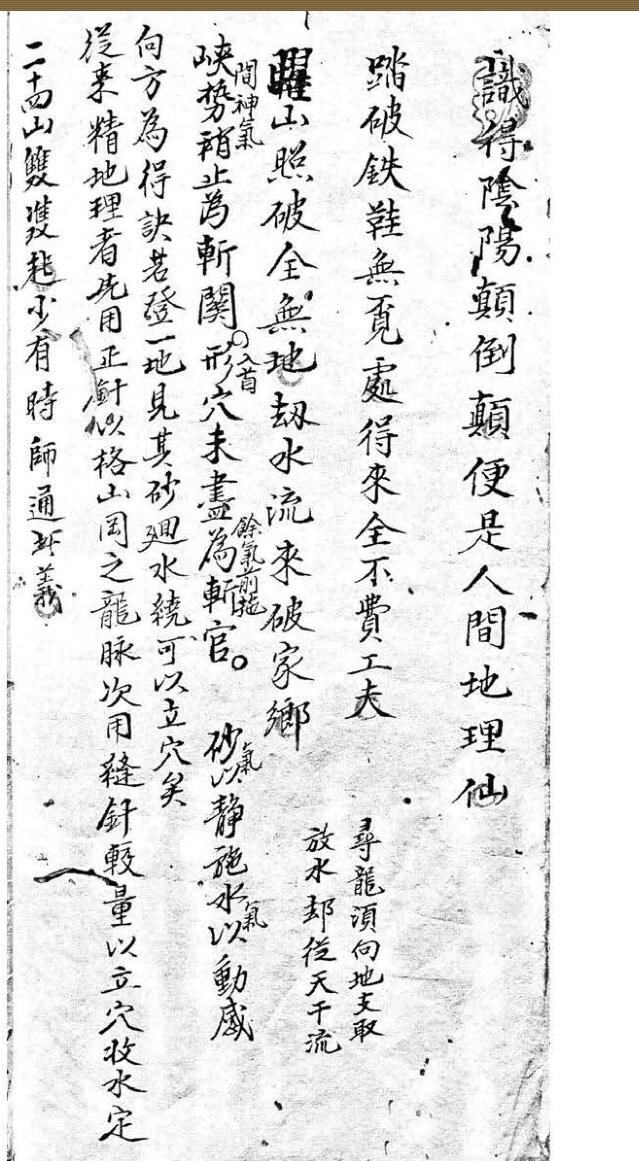 識得陰陽顛倒顛便是人間地理仙
踏破鉄鞋無覔處得來全不費工夫
尋龍須向地支取
放水却從天干流
曜山照破全無地刼水流來破家鄉
間神氣
入首
餘氣前拖
峽勢稍止為斬關。形穴未盡為斬官。
砂以静施水以動感
氣
氣
向方為得訣若登一地見其砂廻水繞可以立穴矣
從来精地理者先用正針以格山岡之龍脉次用縫針較量以立穴收水定
二十四山雙雙起少有時師通此義